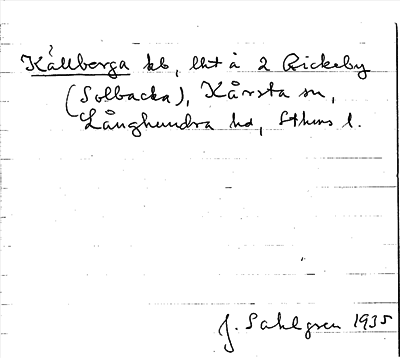 Källberga kb, lht å 2 Rickeby
(Solbacka), Kårsta sn,
Långhundra hd, Sthms l.
J. Sahlgren 1935